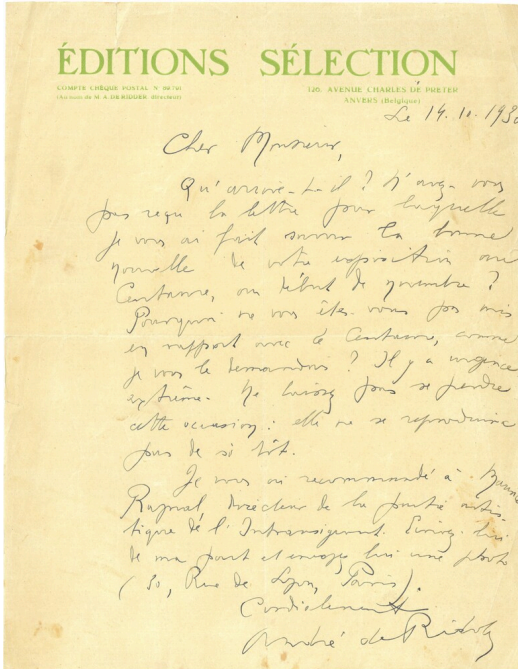 ÉDITIONS SÉLECTION
COMPTE CHÈQUE POSTAL N°
126, AVENUE CHARLES DE PRETER
ANVERS (Belgique)
Le 14.10.1930
Cher Monsieur,
Qu'arrive-t-il ? N'avez-vous
pas reçu la lettre par laquelle
je vous ai fait savoir la bonne
nouvelle de votre exposition au
Centaure, au début de novembre ?
Pourquoi ne vous êtes-vous pas mis
en rapport avec le Centaure, comme
je vous le demandais ? Il y a urgence
extrême. Ne laissez pas se perdre
cette occasion : elle ne se reproduira
pas de si tôt.
Je vous ai recommandé à Maurice
Raynal, directeur de la partie artis-
tique de l'Intransigeant. Ecrivez-lui
de ma part et envoyez lui une photo
(30, Rue de Lyon, Paris).
Cordialement.
André de Ridder